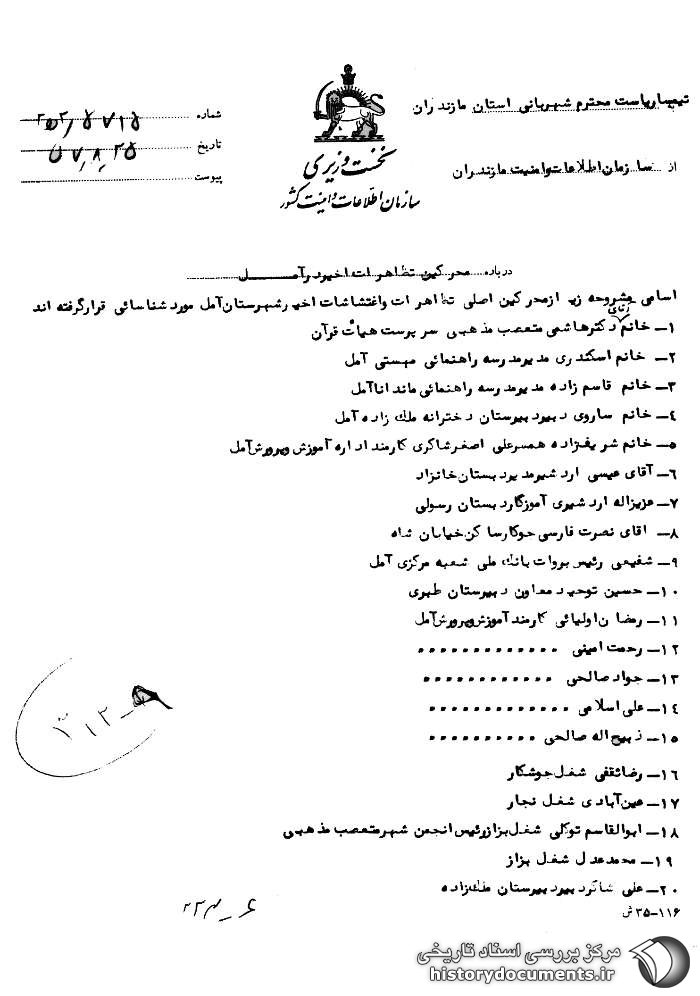 تیمسار ریاست محترم شهربانی استان مازندران
از سازمان اطلاعات و امنیت مازندران
نخست وزیری
سازمان اطلاعات و امنیت کشور
شماره
تاریخ ۵۷٫۸٫۲۵
پیوست
درباره محرکین تظاهرات اخیر در آمل
اسامی مشروحه زیر از محرکین اصلی تظاهرات و اغتشاشات اخیر شهرستان آمل مورد شناسائی قرار گرفته اند
آقای
۱ــ خانم دکتر هاشمی متعصب مذهبی سرپرست هیأت قرآن
۲ــ خانم اسکندری مدیر مدرسه راهنمائی مهستی آمل
۳ــ خانم قاسم زاده مدیر مدرسه راهنمائی ماندانا آمل
۴ــ خانم ساروی دبیر دبیرستان دخترانه ملک زاده آمل
۵ــ خانم شریف زاده همسر علی اصغر شاکری کارمند اداره آموزش و پرورش آمل
۶ــ آقای عیسی اردشیر مدیر دبستان خانزاد
۷ــ عزیزاله اردشیری آموزگار دبستان رسولی
۸ــ اقای نصرت فارسی جوکار ساکن خیابان شاه
۹ــ شفیعی رئیس بروات بانک ملی شعبه مرکزی آمل
۱۰ــ حسین توحید معاون دبیرستان طبری
۱۱ــ رمضان اولیائی کارمند آموزش و پرورش آمل
۱۲ــ رحمت امینی ۰۰۰۰۰۰۰۰۰۰۰۰۰
۱۳ــ جواد صالحی ۰۰۰۰۰۰۰۰۰۰۰۰
۱۴ــ علی اسلامی ۰۰۰۰۰۰۰۰۰۰۰۰۰
۱۵ــ ذبیح اله صالحی ۰۰۰۰۰۰۰۰۰۰
۱۶ــ رضا ثقفی شغل جوشکار
۱۷ــ عین آبادی شغل نجار
۱۸ــ ابوالقاسم توکلی شغل بزاز رئیس انجمن شهر متعصب مذهبی
۱۹ــ محمد عدل شغل بزاز
۲۰ــ علی شاکر دبیر دبیرستان ملک زاده
۳۵-۱۱۶ ش
مرکز بررسی اسناد تاریخی
historydocuments.ir